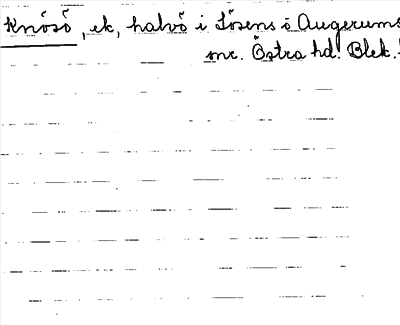 Knösö, ek, halvö i Lösens o Augerums
snr. Östra hd. Blek.